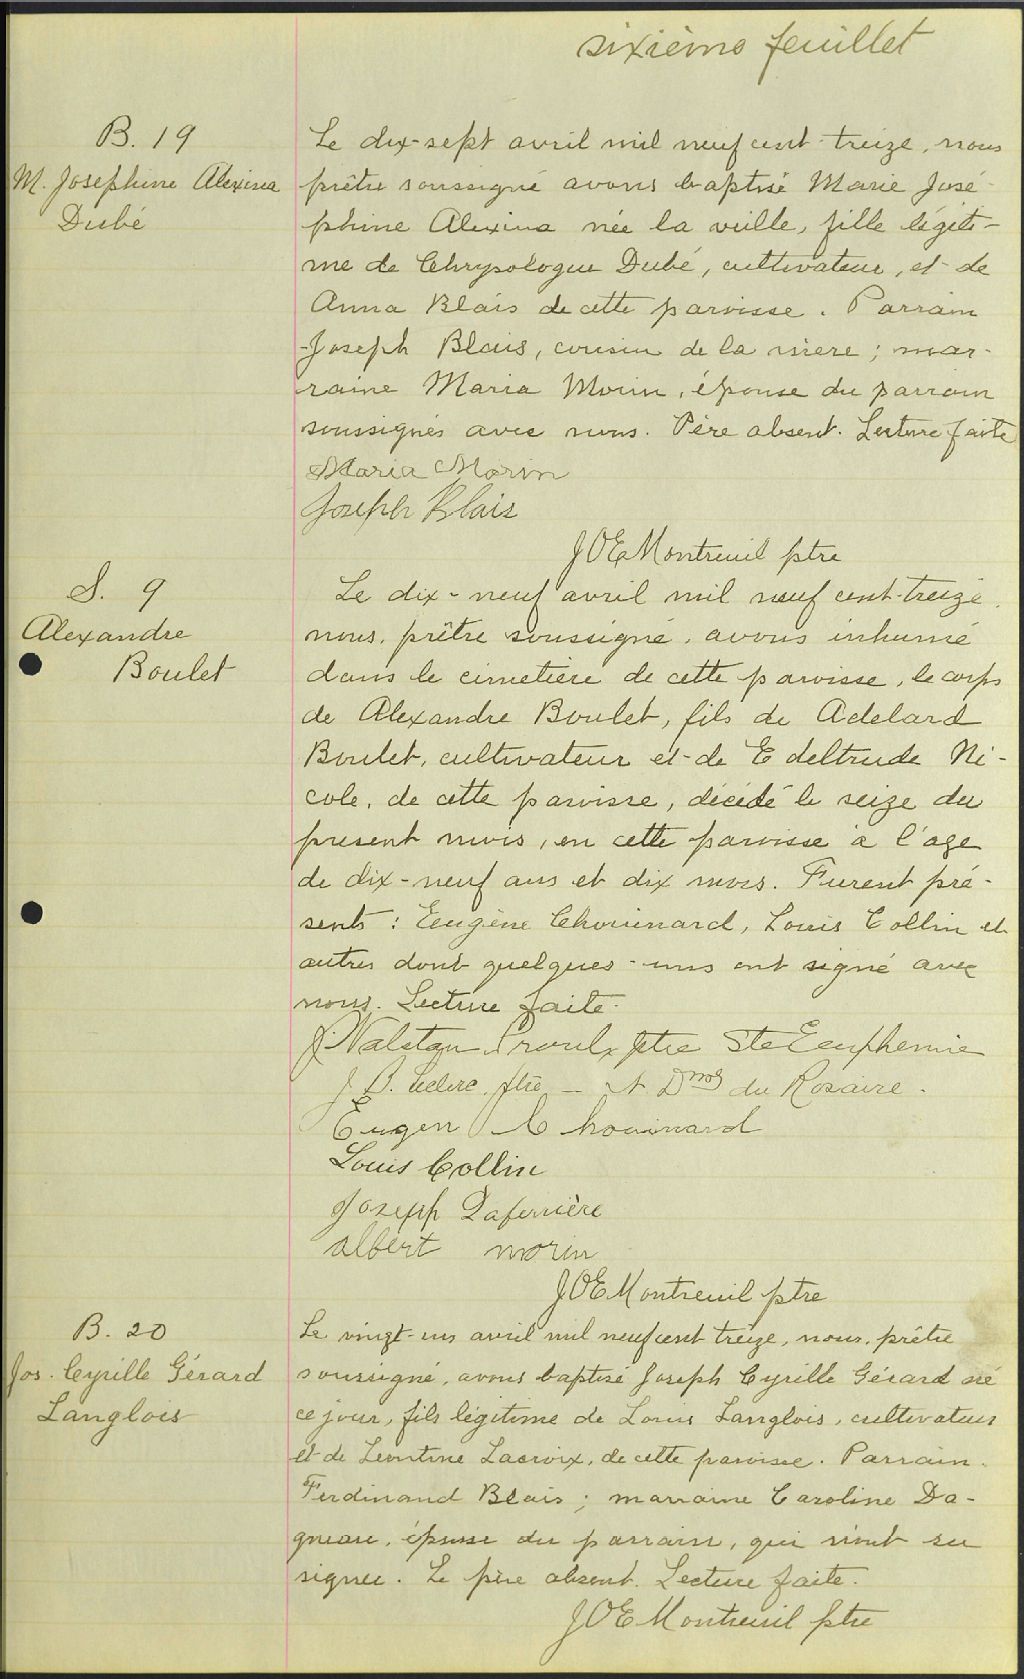 sixième feuillet
B. 19
M. Josephine Alexina
Dubé
Le dix-sept avril mil neuf cent treize, nous
prêtre soussigné avons baptisé Marie José-
phine Alexina née la veille, fille légiti-
me de Chrysologue Dubé, cultivateur, et de
Anna Blais de cette paroisse. Parrain
Joseph Blais, cousin de la mère ; mar-
raine Maria Morin, épouse du parrain
soussignés avec nous. Père absent. Lecture faite
Maria Morin
Joseph Blais
JOE Montreuil ptre
S. 9
Alexandre
Boulet
Le dix-neuf avril mil neuf cent-treize,
nous, prêtre soussigné, avons inhumé
dans le cimetière de cette paroisse, le corps
de Alexandre Boulet, fils de Adelard
Boulet, cultivateur et de Edeltrude Ni-
cole, de cette paroisse, décédé le seize du
present mois, en cette paroisse à l'age
de dix-neuf ans et dix mois. Furent pré-
sents : Eugène Chouinard, Louis Collin et
autres dont quelques-uns ont signé avec
nous. Lecture faite.
J. Nalstan Proulx ptre Ste Euphemie
J. B. Leclerc, ptre — N. D. du Rosaire.
Eugen Chouinard
Louis Collin
Joseph Laferrière
albert morin
JOE Montreuil ptre
B. 20
Jos. Cyrille Gérard
Langlois
Le vingt-un avril mil neuf cent treize, nous, prêtre
soussigné, avons baptisé Joseph Cyrille Gérard né
ce jour, fils légitime de Louis Langlois, cultivateur
et de Leontine Lacroix, de cette paroisse. Parrain
Ferdinand Blais ; marraine Caroline Da-
gneau, épouse du parrain, qui n'ont su
signer. Le père absent. Lecture faite.
JOE Montreuil ptre